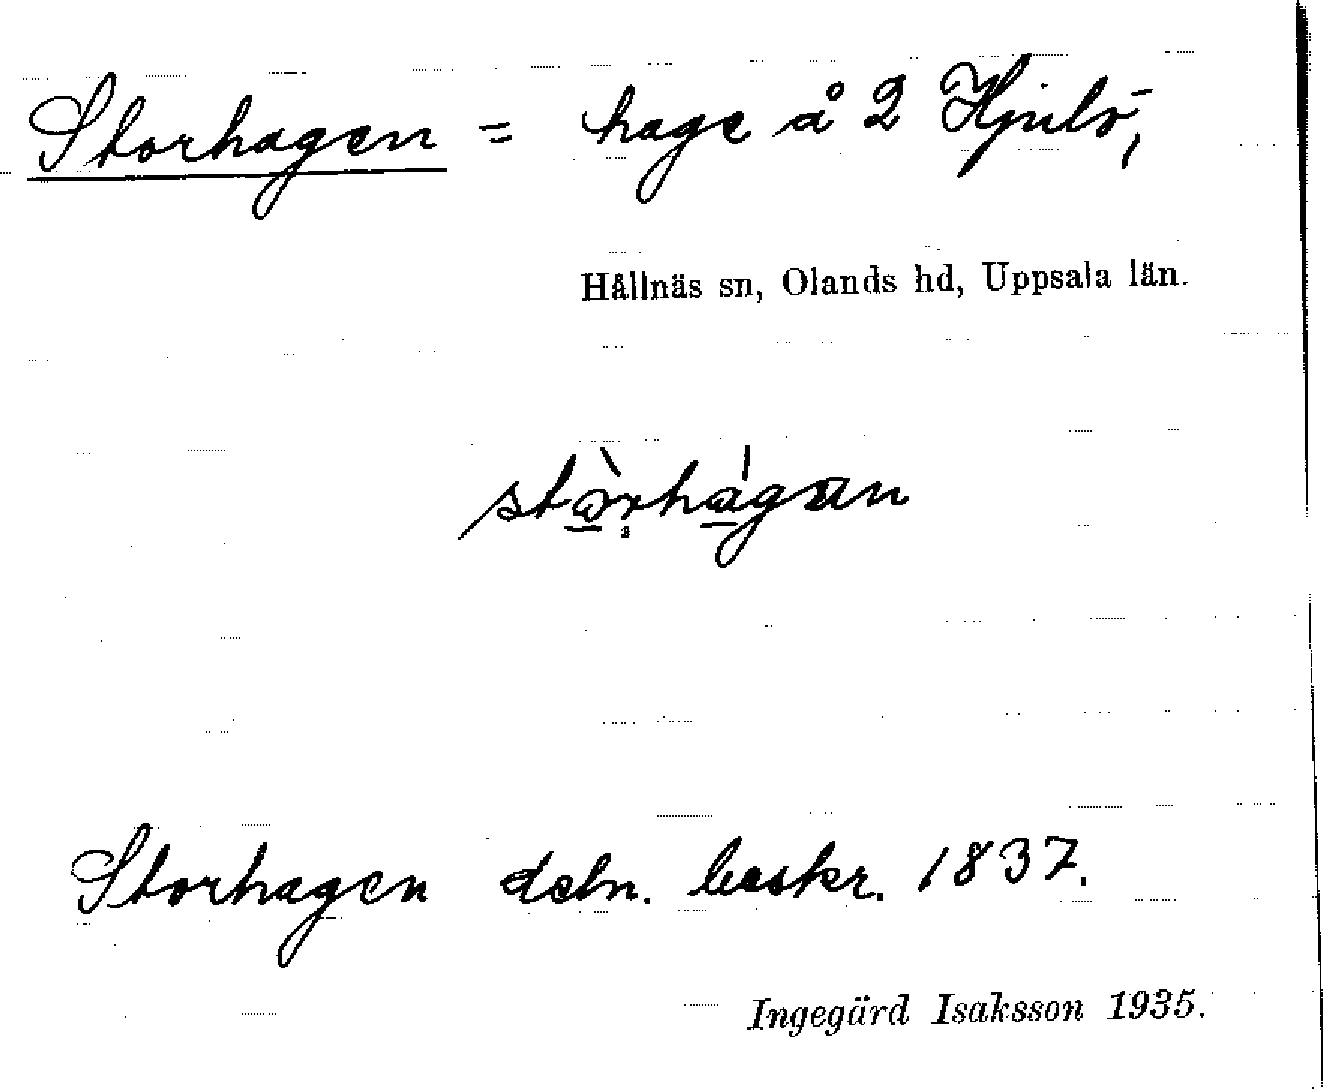 Storhagen = hage å 2 Hjulö,
Hållnäs sn, Olands hd, Uppsala län.
Storhagen deln. beskr. 1837.
Ingegärd Isaksson 1935.